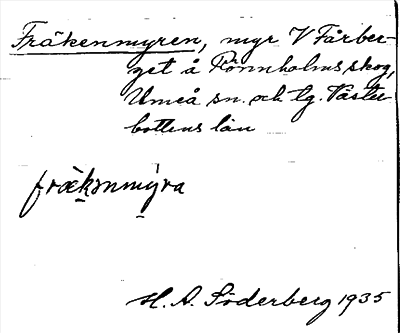 Fräkenmyren, myr V Fårber-
get å Rönnholms skog,
Umeå sn. och lg. Väster-
bottens län
fräkənmyra
H. A. Söderberg 1935